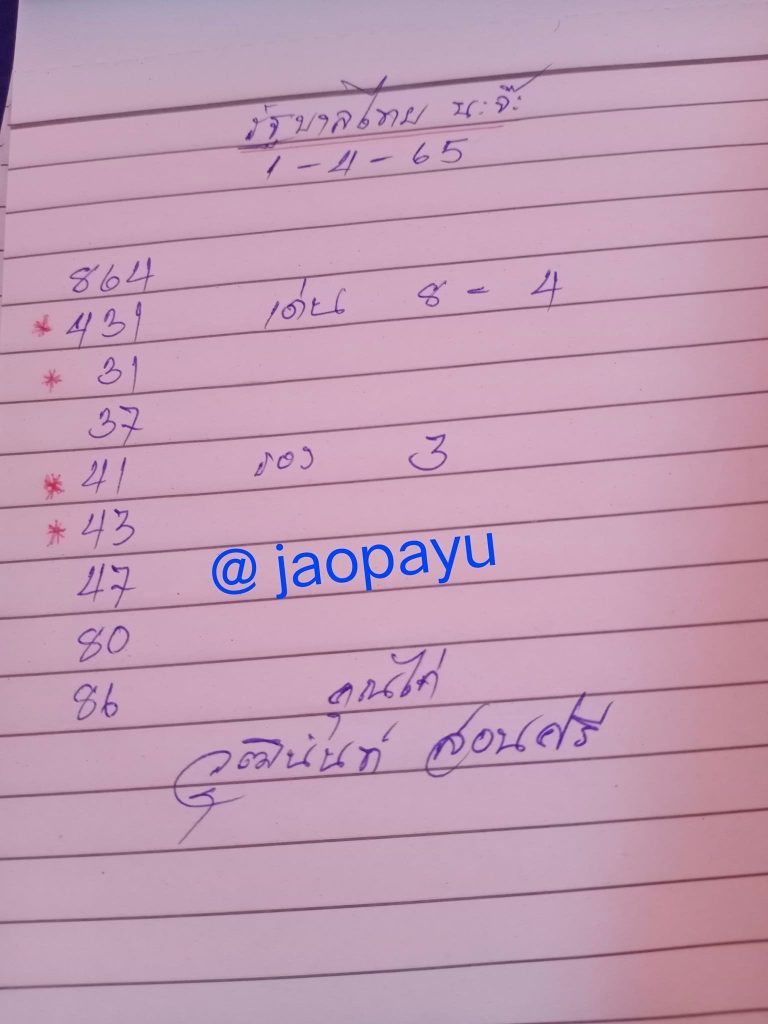 รัฐบาลไทย นะจ๊ะ
1-4-65
864
* 431 เด่น 8-4
* 31
37
* 41 รอง 3
* 43
@ jaopayu
47
80
86
วุฒินันท์ สอนศรี